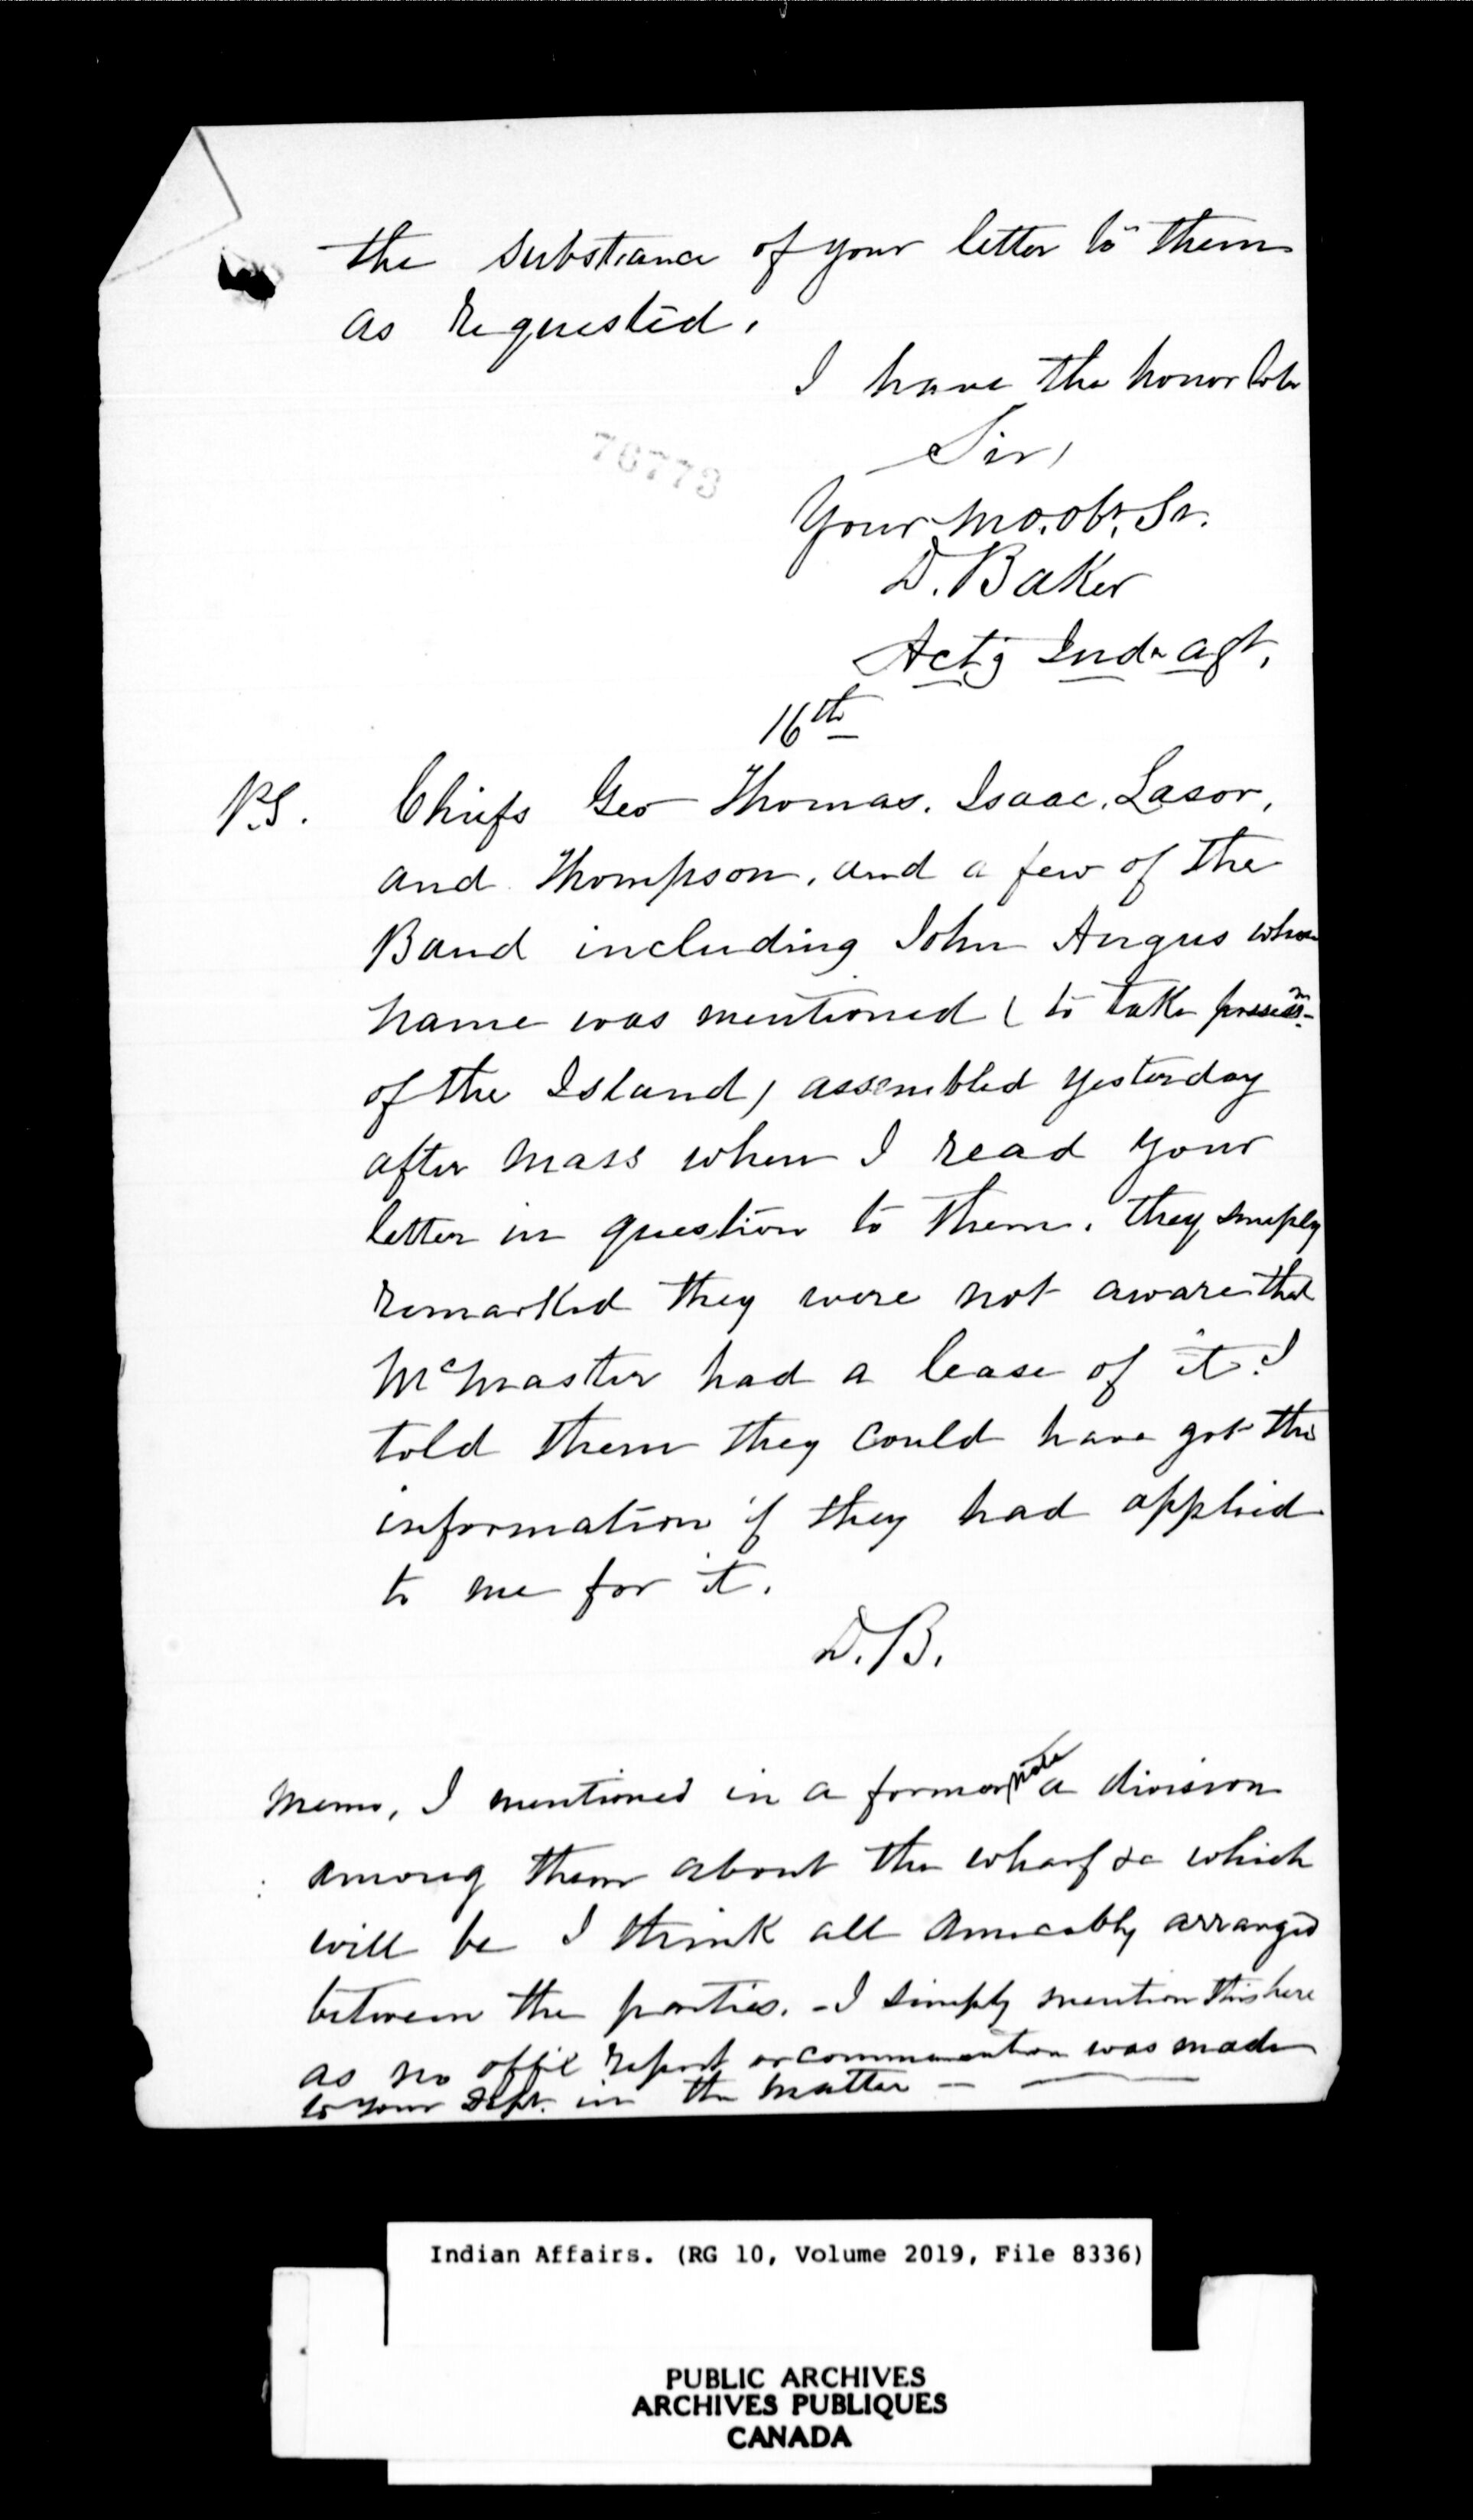 the substance of your letter to them
as requested.
I have the honor to be
Sir,
Your mo. obt. St.
D. Baker
Act'g Ind. agt.
76773
16th
P.S. Chiefs Geo Thomas, Isaac, Lasor,
and Thompson, and a few of the
Band including John Angus whose
name was mentioned ( to take possessn
of the Island ) assembled yesterday
after mass when I read your
letter in question to them. they simply
remarked they were not aware that
McMaster had a lease of it. I
told them they could have got this
information if they had applied
to me for it.
D. B.
Memo, I mentioned in a former note a division
among them about the wharf &c which
will be I think all amicably arranged
between the parties. - I simply mention this here
as no offil report or communication was made
to your Dept. in the matter —
Indian Affairs. (RG 10, Volume 2019, File 8336)
PUBLIC ARCHIVES
ARCHIVES PUBLIQUES
CANADA